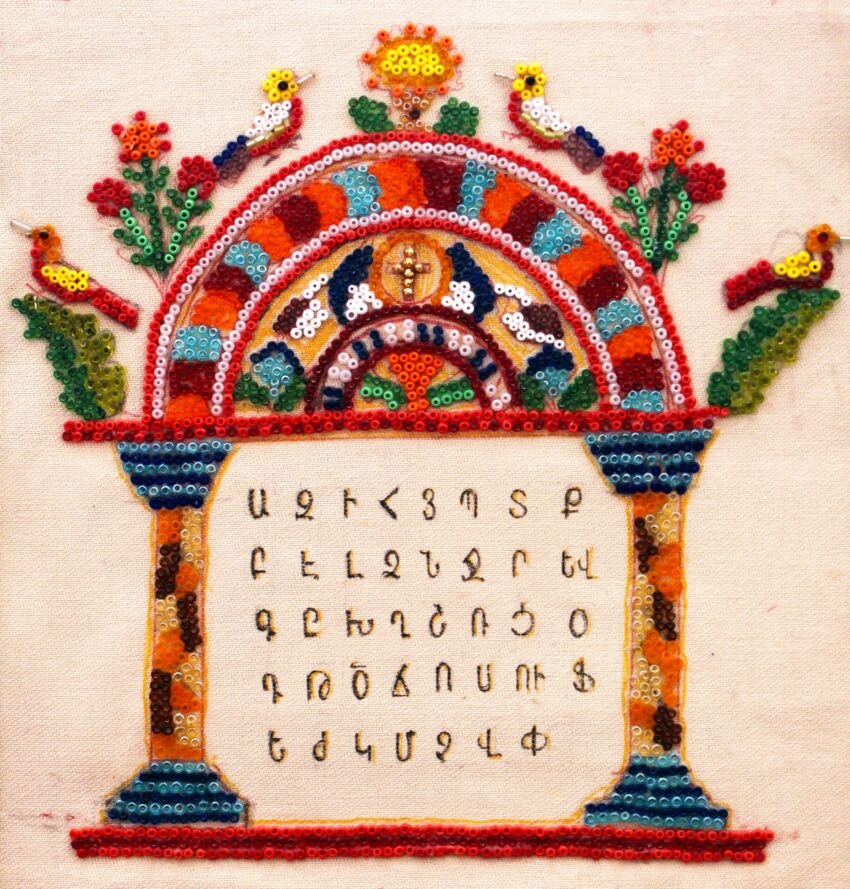 Ա Զ Ի Հ Յ Պ Տ Ք
Բ Է Լ Ձ Ն Ջ Ր ԵՎ
Գ Ը Խ Ղ Շ Ռ Ց Օ
Դ Թ Ծ Ճ Ո Ս ՈՒ Ֆ
Ե Ժ Կ Մ Չ Վ Փ